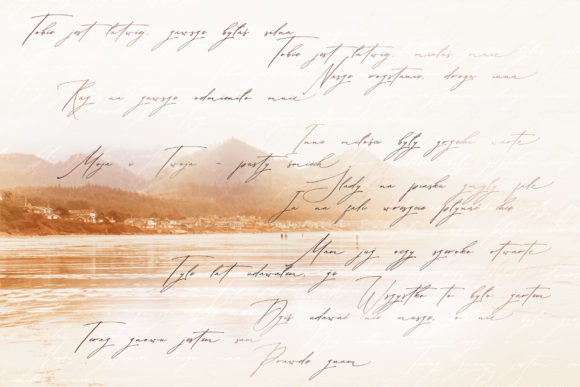 Tobie jest łatwiej, zawsze byłaś silna
Tobie jest łatwiej, miałaś mnie
Nasze rozstanie, droga inna
Raz na zawsze odmieniło mnie
Inne miłości były grzechu warte
Moja i Twoja - pusty śmiech
Ślady na piasku zmyły fale
Ja na fali wreszcie płynąć chcę
Mam już oczy szeroko otwarte
Tyle lat udawałem, że
Wszystko to było żartem
Dziś udawać nie muszę, o nie
Teraz znowu jestem sam
Prawdę znam